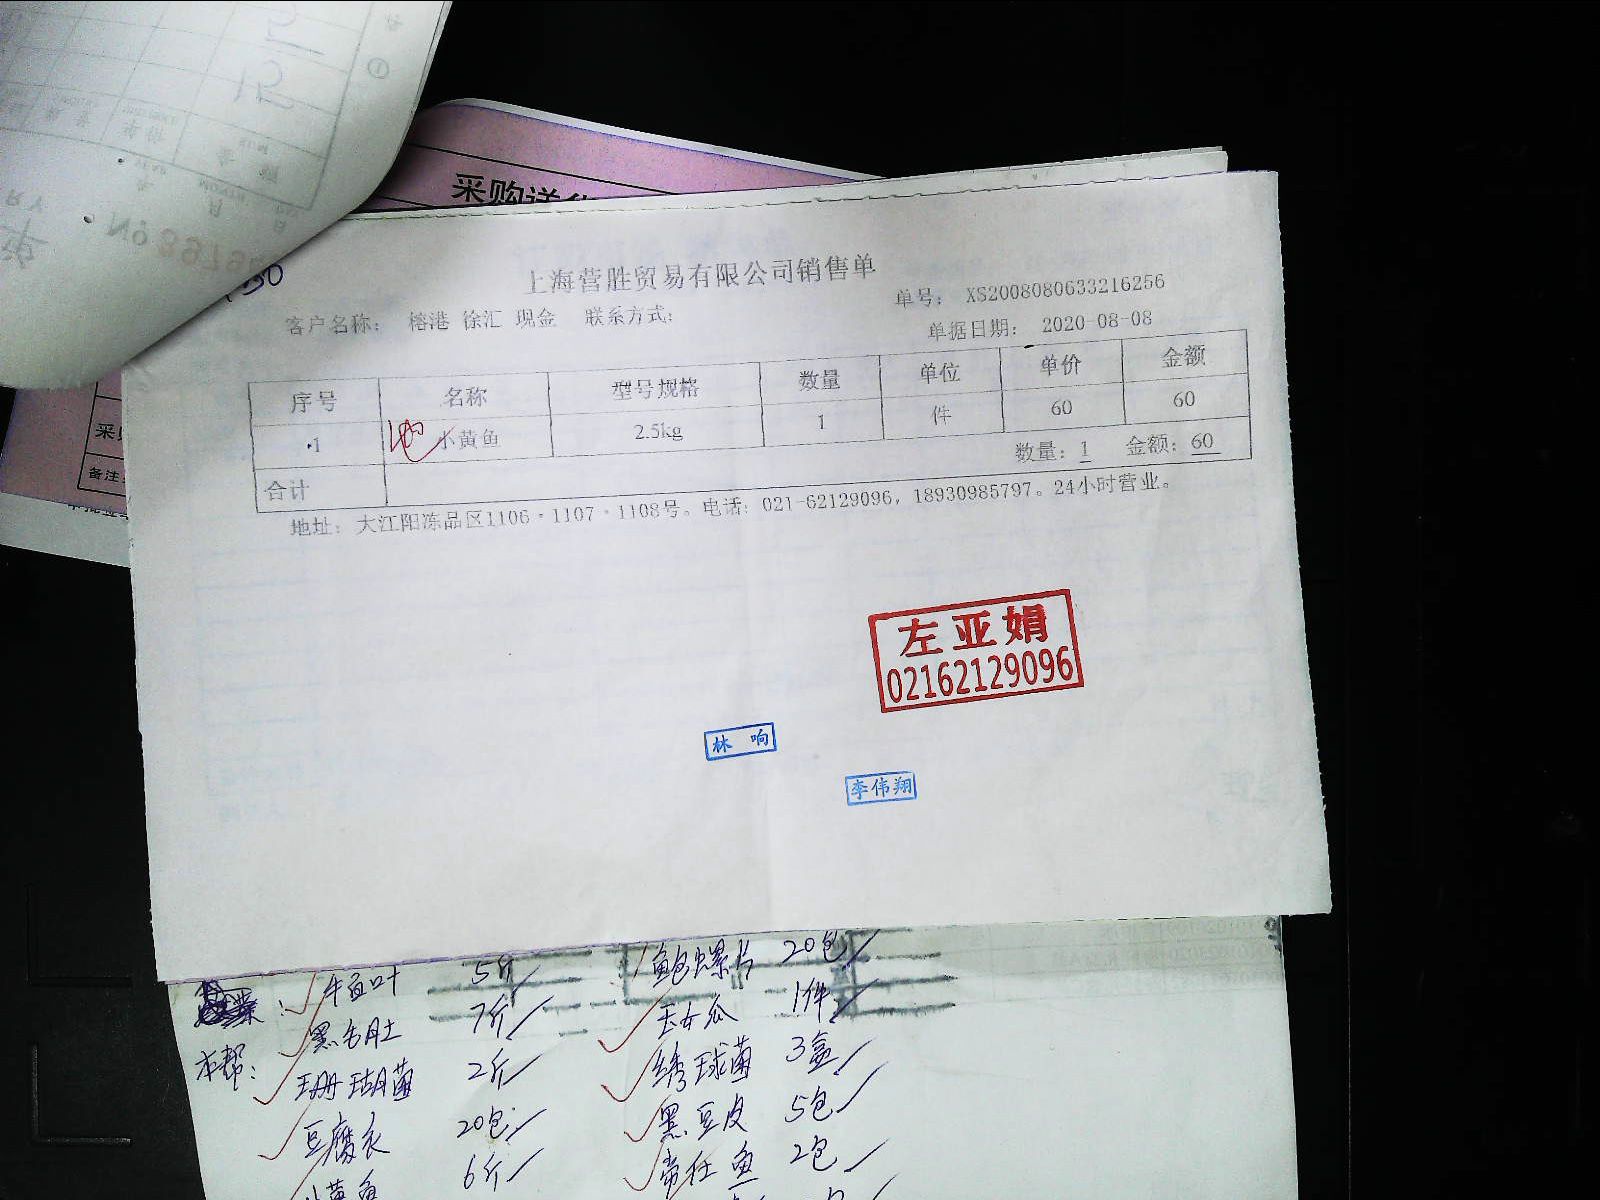 采购送货
上海营胜贸易有限公司销售单
单号： XS2008080633216256
客户名称： 榕港 徐汇 现金 联系方式：
单据日期： 2020-08-08
序号 名称 型号规格 数量 单位 单价 金额
1 小黄鱼 2.5kg 1 件 60 60
合计 数量：1 金额：60
地址：大江阳冻品区1106·1107·1108号。电话：021-62129096，18930985797。24小时营业。
左亚娟
02162129096
林响
李伟翔
采购
备注
5斤 鲍螺片 20包
黑毛肚 7斤 玉女瓜 1件
本帮： 珊瑚菌 2斤 绣球菌 3盒
豆腐衣 20包 黑豆皮 5包
小黄鱼 6斤 鱼 2包